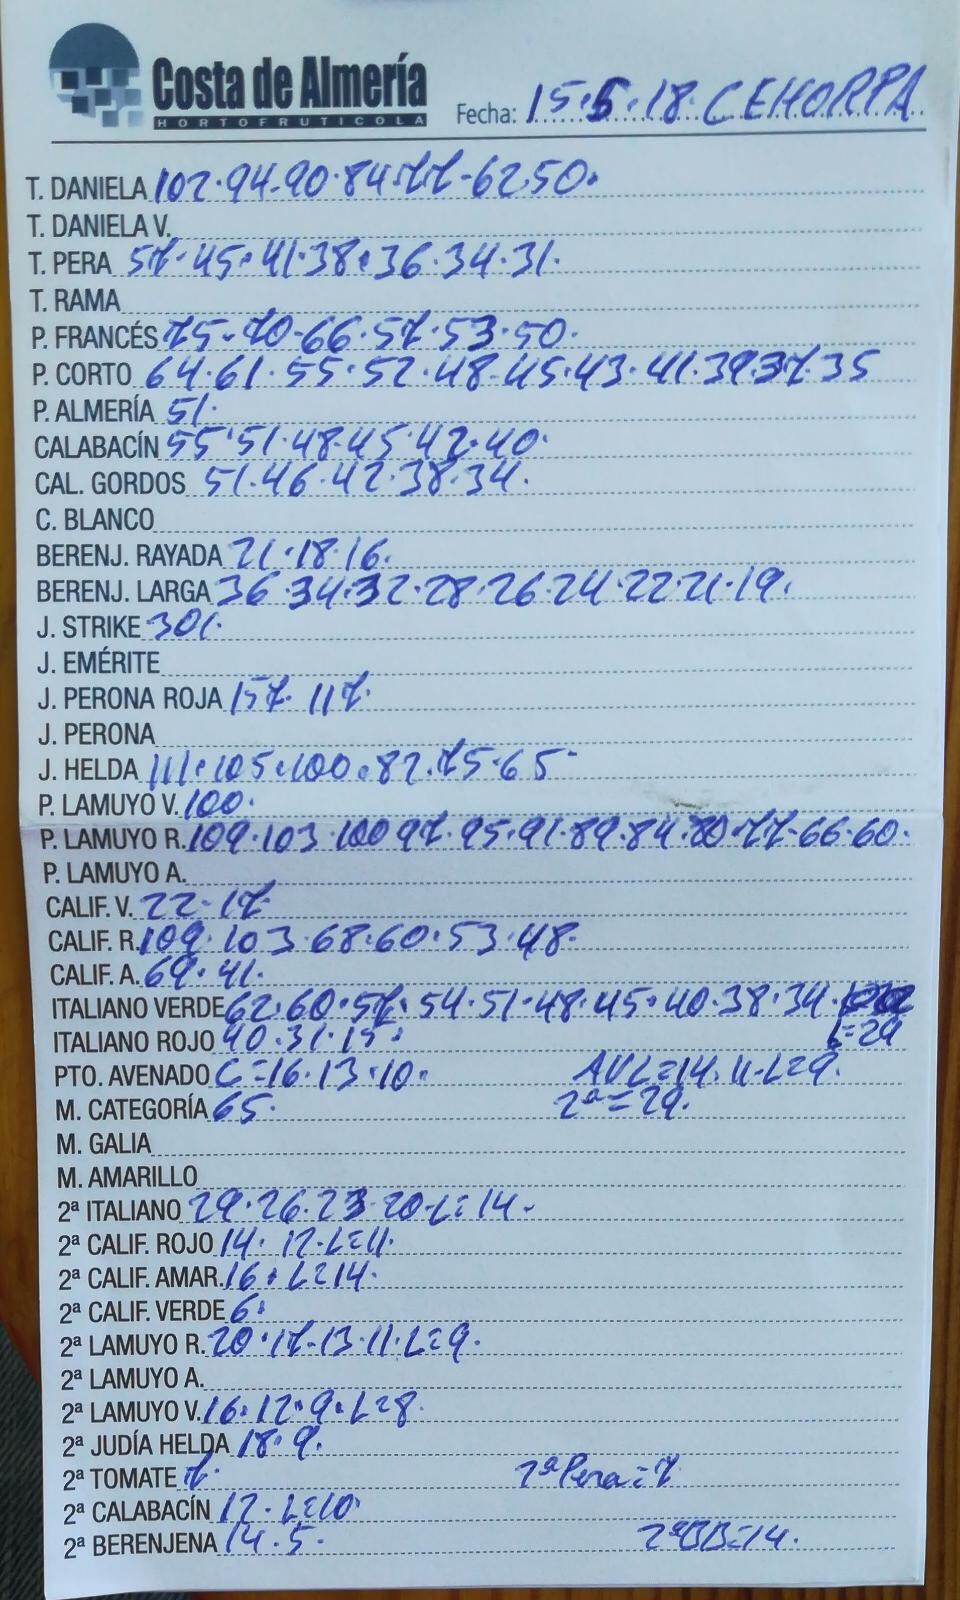 Costa de Almería
HORTOFRUTICOLA
Fecha: 15.5.18 CEHORPA
T. DANIELA 102.94.90.84.77-62.50.
T. DANIELA V.
T. PERA 57.45.41.38.36.34.31.
T. RAMA
P. FRANCÉS 75-70-66.57.53.50.
P. CORTO 64.61.55.52.48-45.43.41.39.37.35
P. ALMERÍA 51.
CALABACÍN 55.51.48.45.42.40.
CAL. GORDOS 51.46.42.38.34.
C. BLANCO
BERENJ. RAYADA 21.18.16.
BERENJ. LARGA 36.34.32.28.26.24.22.21.19.
J. STRIKE 301.
J. EMÉRITE
J. PERONA ROJA 157. 117.
J. PERONA
J. HELDA 111.105.100.82.75.65-
P. LAMUYO V. 100.
P. LAMUYO R. 109.103.100 97.95.91.89.84.80.77-66.60.
P. LAMUYO A.
CALIF. V. 22-17
CALIF. R. 109.103.68.60.53.48.
CALIF. A. 69.41.
ITALIANO VERDE 62.60.57.54.51.48.45.40.38.34.
L=29
ITALIANO ROJO 40.31.15.
PTO. AVENADO C=16.13.10. AVL=14.11-L=9.
M. CATEGORÍA 65. 2ª=29.
M. GALIA
M. AMARILLO
2ª ITALIANO 29.26.23.20-L=14-
2ª CALIF. ROJO 14. 12-L=11.
2ª CALIF. AMAR. 16. L=14.
2ª CALIF. VERDE 6.
2ª LAMUYO R. 20.17-13.11.L=9.
2ª LAMUYO A.
2ª LAMUYO V. 16.12.9.L=8.
2ª JUDÍA HELDA 18.9.
2ª TOMATE 7. 2ª Pera=7
2ª CALABACÍN 12.L=10
2ª BERENJENA 14.5. 2ªBB=14.